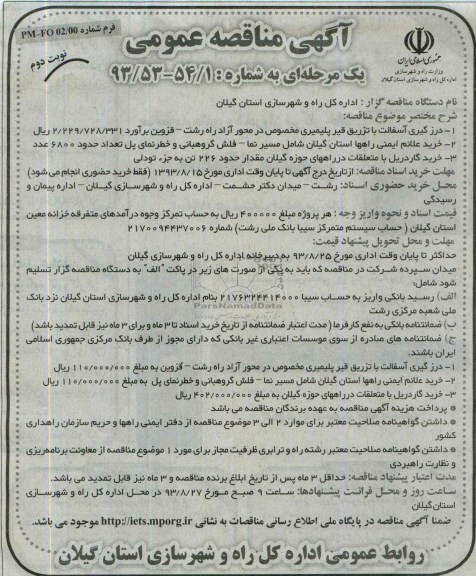 فرم شماره PM-FO 02/00
نوبت دوم
آگهی مناقصه عمومی
یک مرحله‌ای به شماره : ۵۴/۱-۵۳-۹۳
جمهوری اسلامی ایران
وزارت راه و شهرسازی
اداره کل راه و شهرسازی استان گیلان
نام دستگاه مناقصه گزار : اداره کل راه و شهرسازی استان گیلان
شرح مختصر موضوع مناقصه:
۱- درز گیری آسفالت با تزریق قیر پلیمیری مخصوص در محور آزاد راه رشت – قزوین برآورد ۲/۲۲۹/۷۲۸/۳۳۱ ریال
۲- خرید علائم ایمنی راهها استان گیلان شامل مسیر نما – فلش گروهبانی و خطرنمای پل تعداد حدود ۶۸۰۰ عدد
۳- خرید گاردریل با متعلقات درراههای حوزه گیلان مقدار حدود ۲۲۶ تن به جزء تودلی
مهلت خرید اسناد مناقصه: ازتاریخ درج آگهی تا پایان وقت اداری مورخ ۱۳۹۳/۸/۱۵ (فقط خرید حضوری انجام می شود)
محل خرید حضوری اسناد: رشت – میدان دکتر حشمت – اداره کل راه و شهرسازی گیلان – اداره پیمان و
رسیدگی
قیمت اسناد و نحوه واریز وجه : هر پروژه مبلغ ۴۰۰۰۰۰ ریال به حساب تمرکز وجوه درآمدهای متفرقه خزانه معین
استان گیلان ( حساب سیستم متمرکز سیبا بانک ملی رشت) شماره ۲۱۷۰۰۹۴۴۳۷۰۰۶
مهلت و محل تحویل پیشنهاد قیمت:
حداکثر تا پایان وقت اداری مورخ ۹۳/۸/۲۵ به دبیرخانه اداره کل راه و شهرسازی گیلان
میزان سپرده شرکت در مناقصه که باید به یکی از صورت های زیر در پاکت "الف" به دستگاه مناقصه گزار تسلیم
شود شامل:
الف) رسید بانکی واریز به حساب سیبا ۲۱۷۶۳۲۴۴۱۴۰۰۰ بنام اداره کل راه و شهرسازی استان گیلان نزد بانک
ملی شعبه مرکزی رشت
ب) ضمانتنامه بانکی به نفع کارفرما ( مدت اعتبار ضمانتنامه از تاریخ خرید اسناد تا ۳ ماه و برای ۳ ماه نیز قابل تمدید باشد)
ج) ضمانتنامه های صادره از سوی موسسات اعتباری غیر بانکی که دارای مجوز از طرف بانک مرکزی جمهوری اسلامی
ایران باشند.
۱- درز گیری آسفالت با تزریق قیر پلیمیری مخصوص در محور آزاد راه رشت – قزوین به مبلغ ۱۱۰/۰۰۰/۰۰۰ ریال
۲- خرید علائم ایمنی راهها استان گیلان شامل مسیر نما – فلش گروهبانی و خطرنمای پل به مبلغ ۱۱۰/۰۰۰/۰۰۰ ریال
۳- خرید گاردریل با متعلقات درراههای حوزه گیلان به مبلغ ۴۰۲/۰۰۰/۰۰۰ ریال
* پرداخت هزینه آگهی مناقصه به عهده برندگان مناقصه می باشد
* داشتن گواهینامه صلاحیت معتبر برای موارد ۲ الی ۳ موضوع مناقصه از دفتر ایمنی راهها و حریم سازمان راهداری
کشور
* داشتن گواهینامه صلاحیت معتبر رشته راه و ترابری ظرفیت مجاز برای مورد ۱ موضوع مناقصه از معاونت برنامه‌ریزی
و نظارت راهبردی
مدت اعتبار پیشنهاد مناقصه: حداقل ۳ ماه پس از تاریخ ابلاغ برنده مناقصه و ۳ ماه نیز قابل تمدید می باشد.
ساعت روز و محل قرائت پیشنهادها: ساعت ۹ صبح مورخ ۹۳/۸/۲۷ در محل اداره کل راه و شهرسازی
استان گیلان
ضمنا آگهی مناقصه در پایگاه ملی اطلاع رسانی مناقصات به نشانی http://iets.mporg.ir موجود می باشد.
روابط عمومی اداره کل راه و شهرسازی استان گیلان